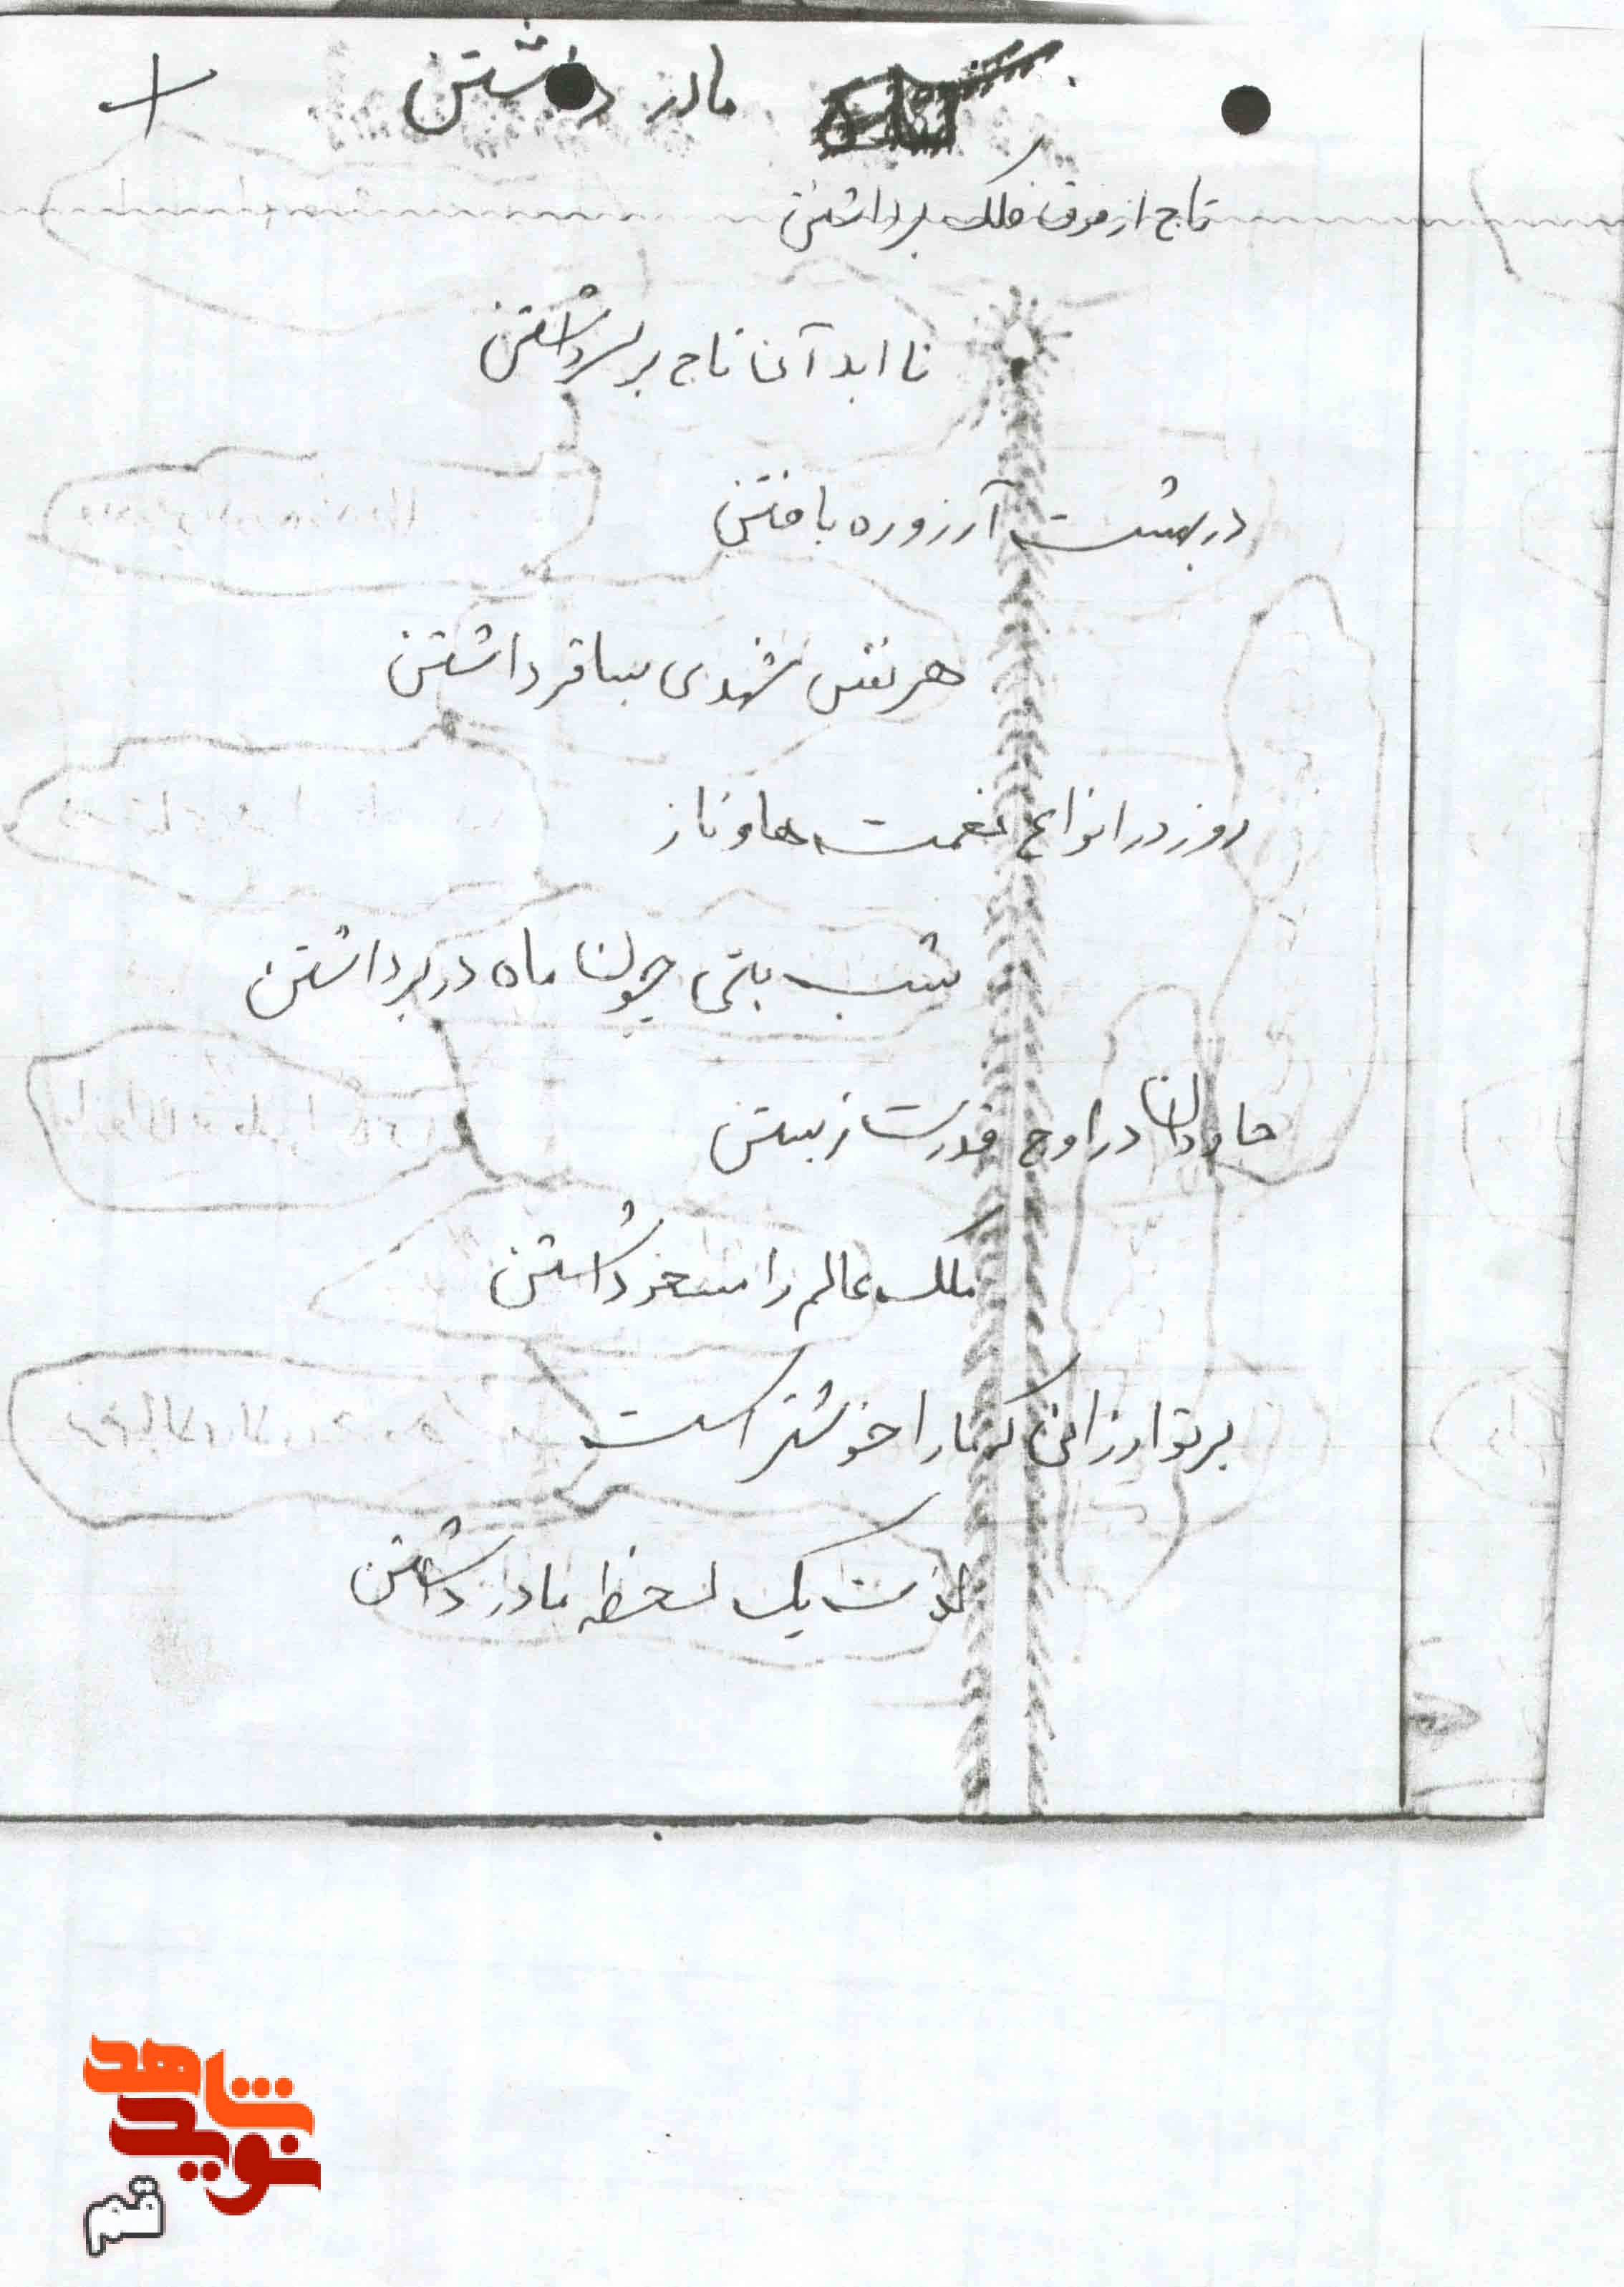 مادر داشتن
تاج از فرق فلک برداشتن
تا ابد آن تاج بر سر داشتن
در بهشت آرزو ره یافتن
هر نفس شهدی بساغر داشتن
روز در انواع نعمت ها و ناز
شب بتی چون ماه در بر داشتن
جاودان در اوج قدرت زیستن
ملک عالم را مسخر داشتن
بر تو ارزانی که ما را خوشتر است
لذت یک لحظه مادر داشتن
نوید شاهد
قم